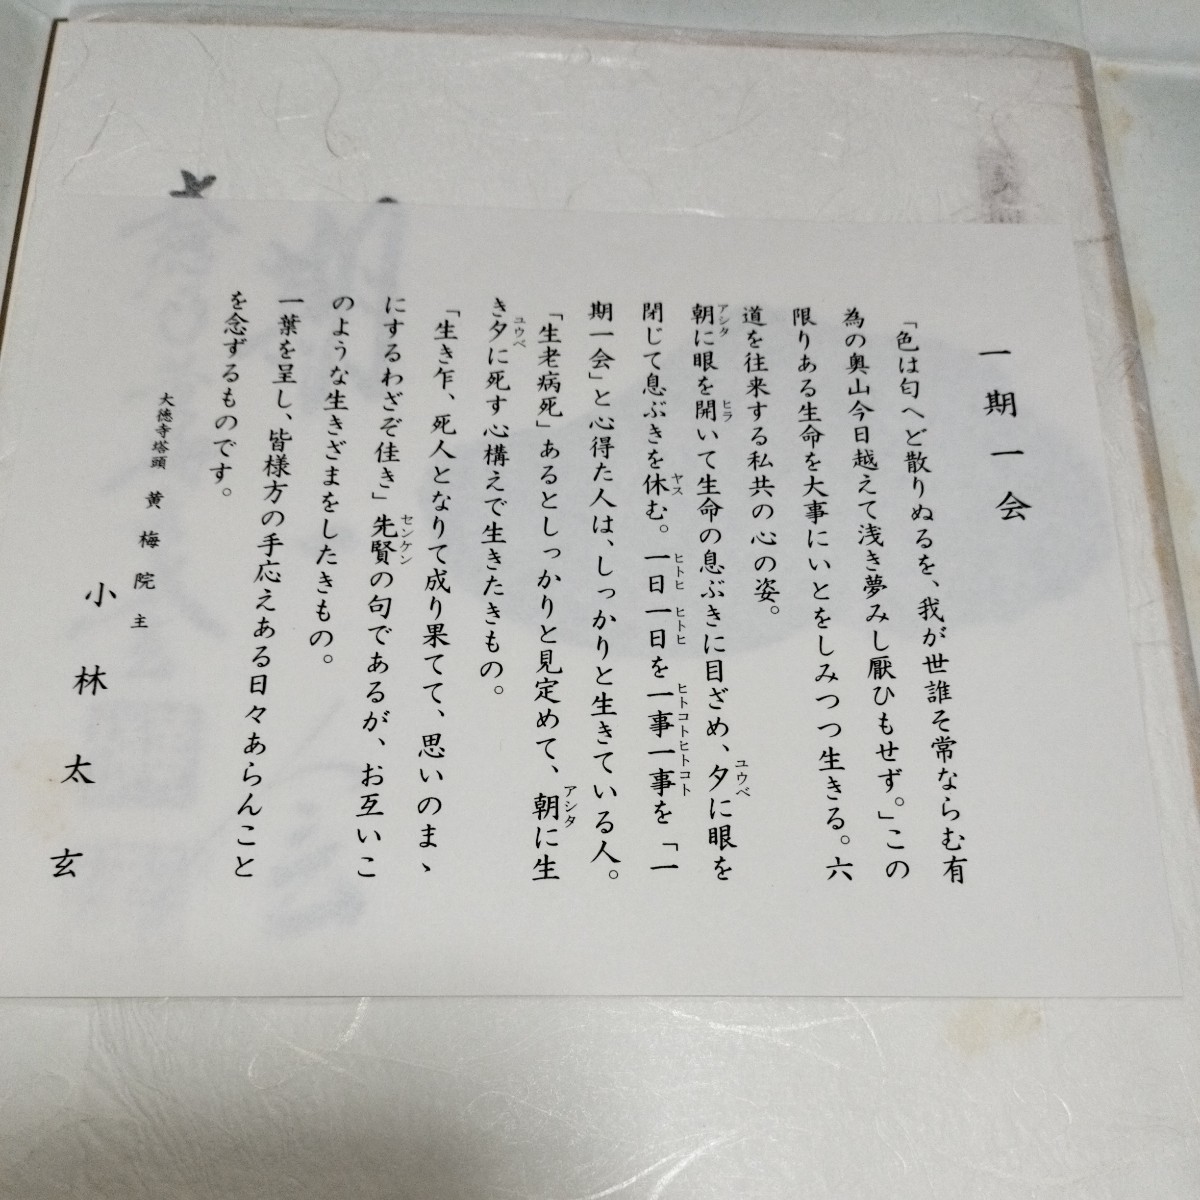 一期一会
「色は匂へど散りぬるを、我が世誰そ常ならむ有
為の奥山今日越えて浅き夢みし厭ひもせず。」この
限りある生命を大事にいとをしみつつ生きる。六
道を往来する私共の心の姿。
朝に眼を開いて生命の息ぶきに目ざめ、夕に眼を
閉じて息ぶきを休む。一日一日を一事一事を「一
期一会」と心得た人は、しっかりと生きている人。
「生老病死」あるとしっかりと見定めて、朝に生
き夕に死す心構えで生きたきもの。
「生き乍、死人となりて成り果てて、思いのまゝ
にするわざぞ佳き」先賢の句であるが、お互いこ
のような生きざまをしたきもの。
一葉を呈し、皆様方の手応えある日々あらんこと
を念ずるものです。
大徳寺塔頭 黄梅院主
小林太玄